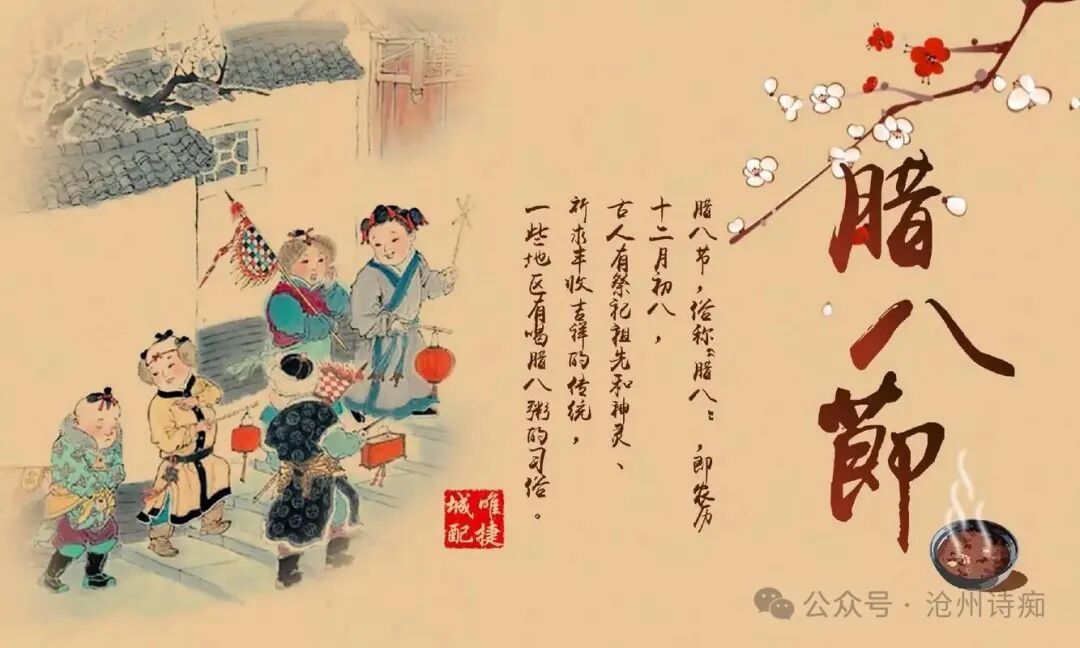 腊八节
腊八节，俗称“腊八”，即农历
十二月初八，
古人有祭祀祖先和神灵、
祈求丰收吉祥的传统，
一些地区有喝腊八粥的习俗。
唯捷
城配
公众号·沧州诗痴